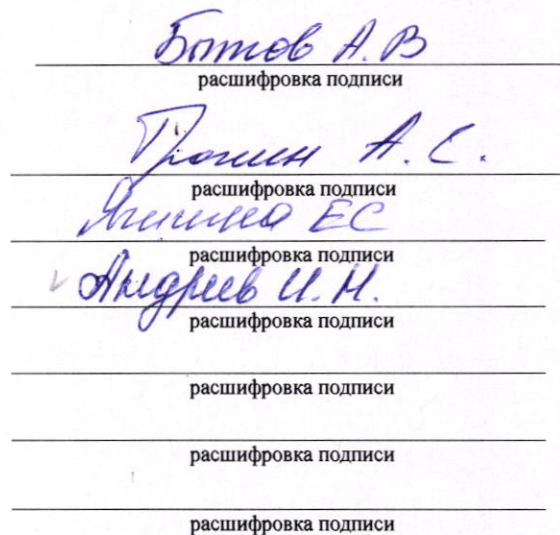 А.В
расшифровка подписи
А.С.
расшифровка подписи
ЕС
расшифровка подписи
Андреев И.Н.
расшифровка подписи
расшифровка подписи
расшифровка подписи
расшифровка подписи